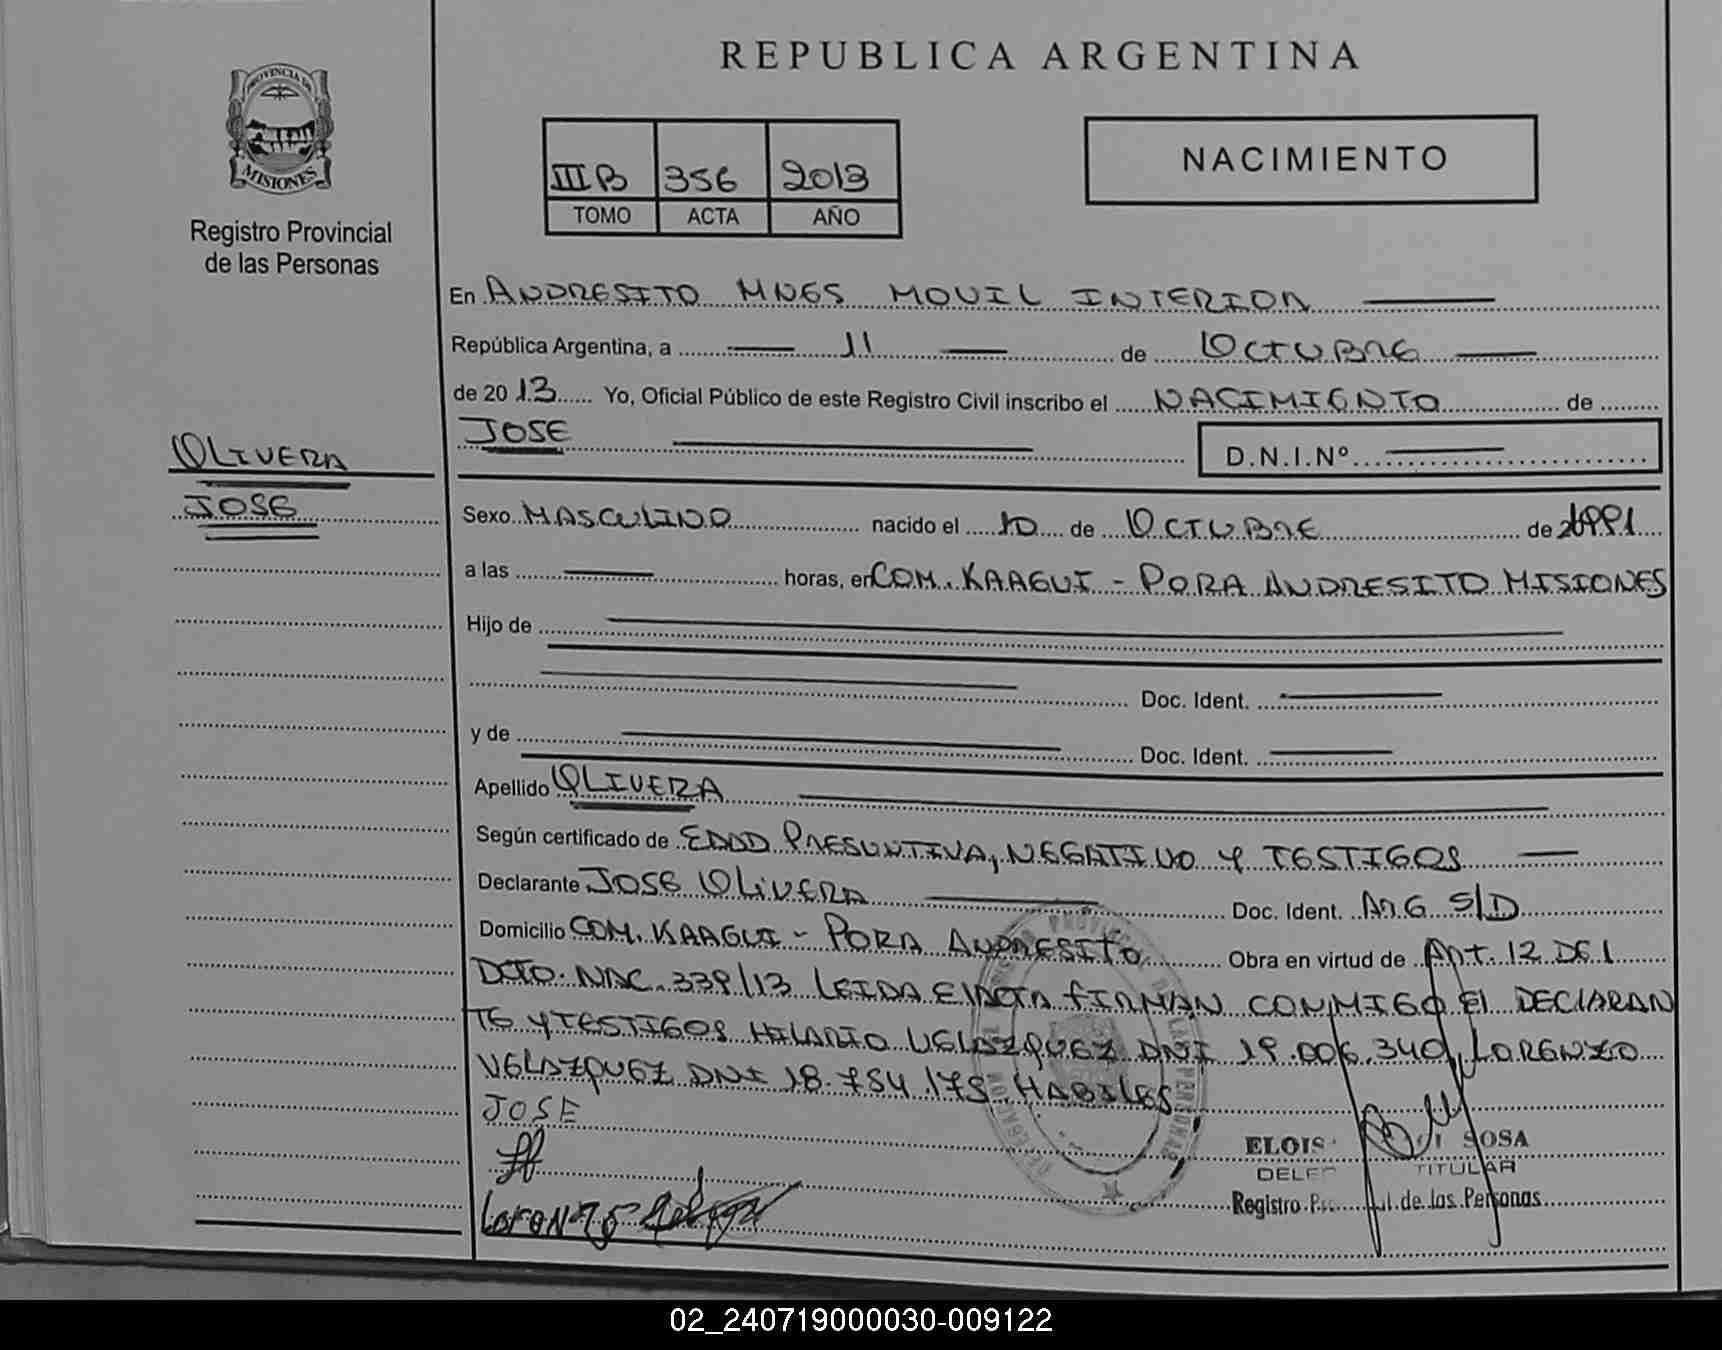 REPUBLICA ARGENTINA
PROVINCIA DE
MISIONES
Registro Provincial
de las Personas
III B 356 2013
TOMO ACTA AÑO
NACIMIENTO
En ANDRESITO MNES MOVIL INTERIOR
República Argentina, a 11 de OCTUBRE
de 2013 Yo, Oficial Público de este Registro Civil inscribo el NACIMIENTO de
JOSE D.N.I.Nº
OLIVERA
JOSE
Sexo MASCULINO nacido el 10 de OCTUBRE de 1991
a las horas, en COM. KAAGUI - PORA ANDRESITO MISIONES
Hijo de
Doc. Ident.
y de Doc. Ident.
Apellido OLIVERA
Según certificado de EDAD PRESUNTIVA, NEGATIVO Y TESTIGOS
Declarante JOSE OLIVERA Doc. Ident. ARG S/D
Domicilio COM. KAAGUI - PORA ANDRESITO Obra en virtud de ART. 12 DEL
DCTO. NAC. 339/13 LEIDA EL ACTA FIRMAN CONMIGO El DECLARAN
TE Y TESTIGOS HILARIO VELAZQUEZ DNI 19.006.340, LORENZO
VELAZQUEZ DNI 18.784.175- HABILES
JOSE
LORENZO
ELOIS SOSA
TITULAR
Registro de las Personas
02_240719000030-009122